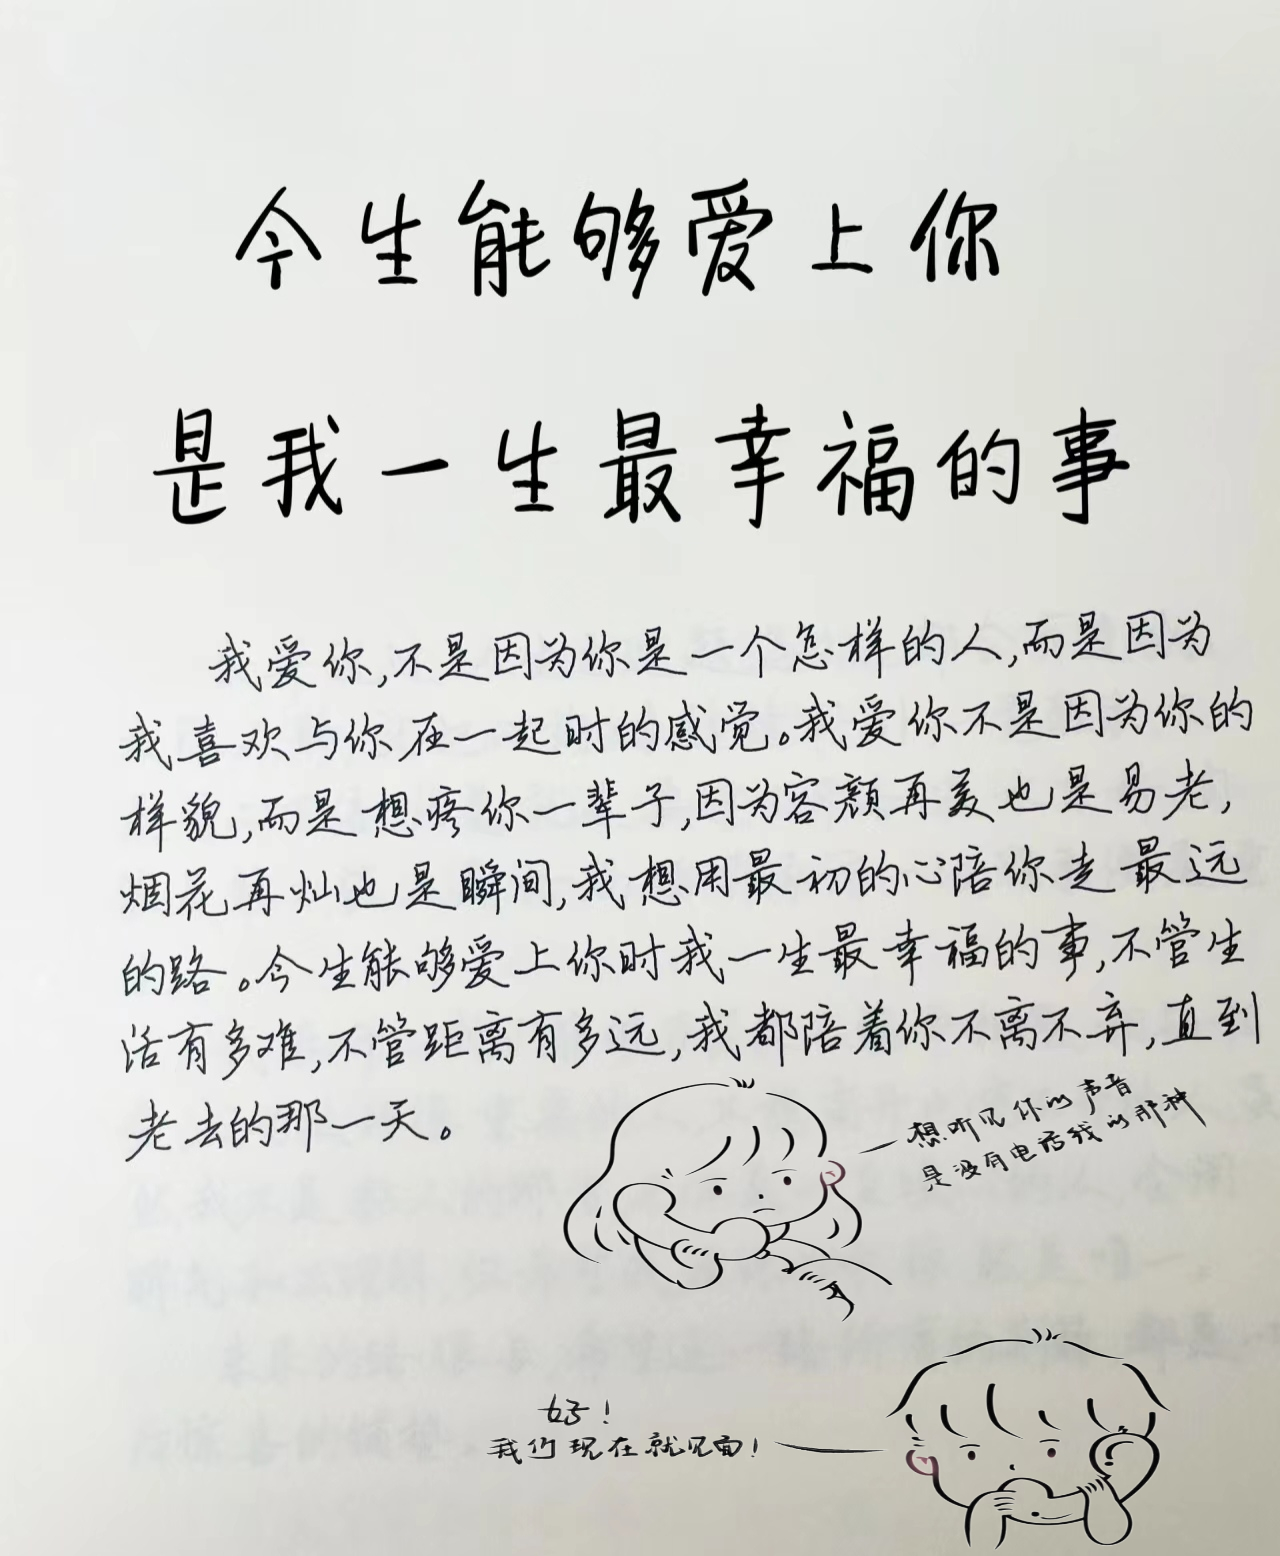 今生能够爱上你
是我一生最幸福的事
我爱你,不是因为你是一个怎样的人,而是因为
我喜欢与你在一起时的感觉。我爱你不是因为你的
样貌,而是想疼你一辈子,因为容颜再美也是易老,
烟花再灿也是瞬间,我想用最初的心陪你走最远
的路。今生能够爱上你时我一生最幸福的事,不管生
活有多难,不管距离有多远,我都陪着你不离不弃,直到
老去的那一天。
想听见你的声音
是没有电话线的那种
好!
我们现在就见面!